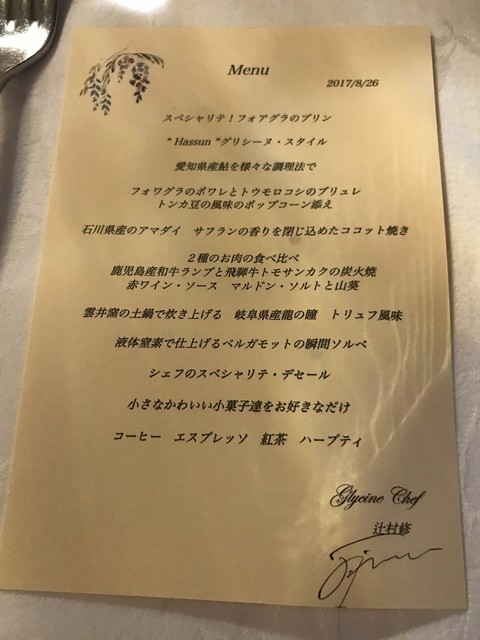 Menu
2017/8/26
スペシャリテ!フォアグラのプリン
“ Hassun ”グリシーヌ・スタイル
愛知県産鮎を様々な調理法で
フォワグラのポワレとトウモロコシのブリュレ
トンカ豆の風味のポップコーン添え
石川県産のアマダイ　サフランの香りを閉じ込めたココット焼き
２種のお肉の食べ比べ
鹿児島産和牛ランプと飛騨牛トモサンカクの炭火焼
赤ワイン・ソース　マルドン・ソルトと山葵
雲井窯の土鍋で炊き上げる　岐阜県産龍の瞳　トリュフ風味
液体窒素で仕上げるベルガモットの瞬間ソルベ
シェフのスペシャリテ・デセール
小さなかわいい小菓子達をお好きなだけ
コーヒー　エスプレッソ　紅茶　ハーブティ
Glycine Chef
辻村修